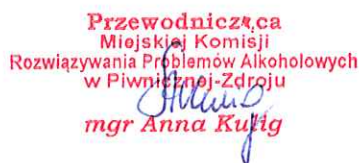 Przewodnicząca
Miejskiej Komisji
Rozwiązywania Problemów Alkoholowych
w Piwnicznej-Zdroju
mgr Anna Kulig